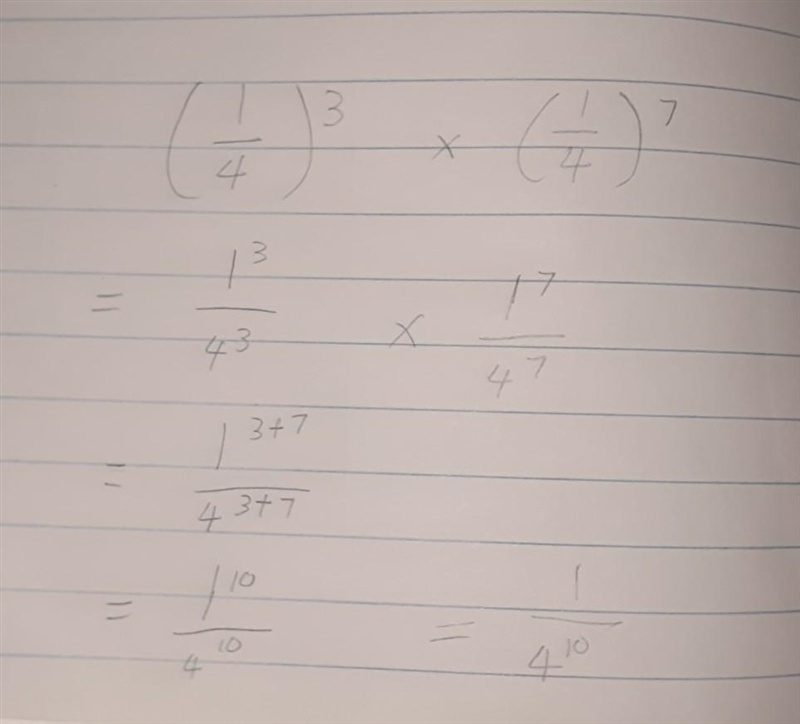 (1/4)^3 × (1/4)^7
= 1^3/4^3 × 1^7/4^7
= 1^(3+7)/4^(3+7)
= 1^10/4^10 = 1/4^10